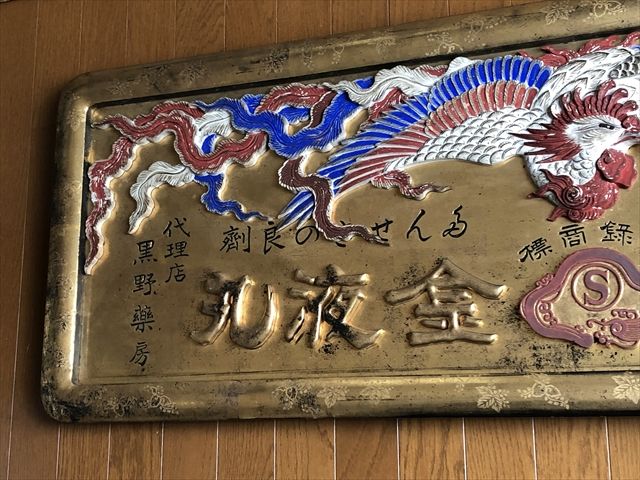 録商標
S
たんせきの良劑
金液丸
代理店
黒野藥房